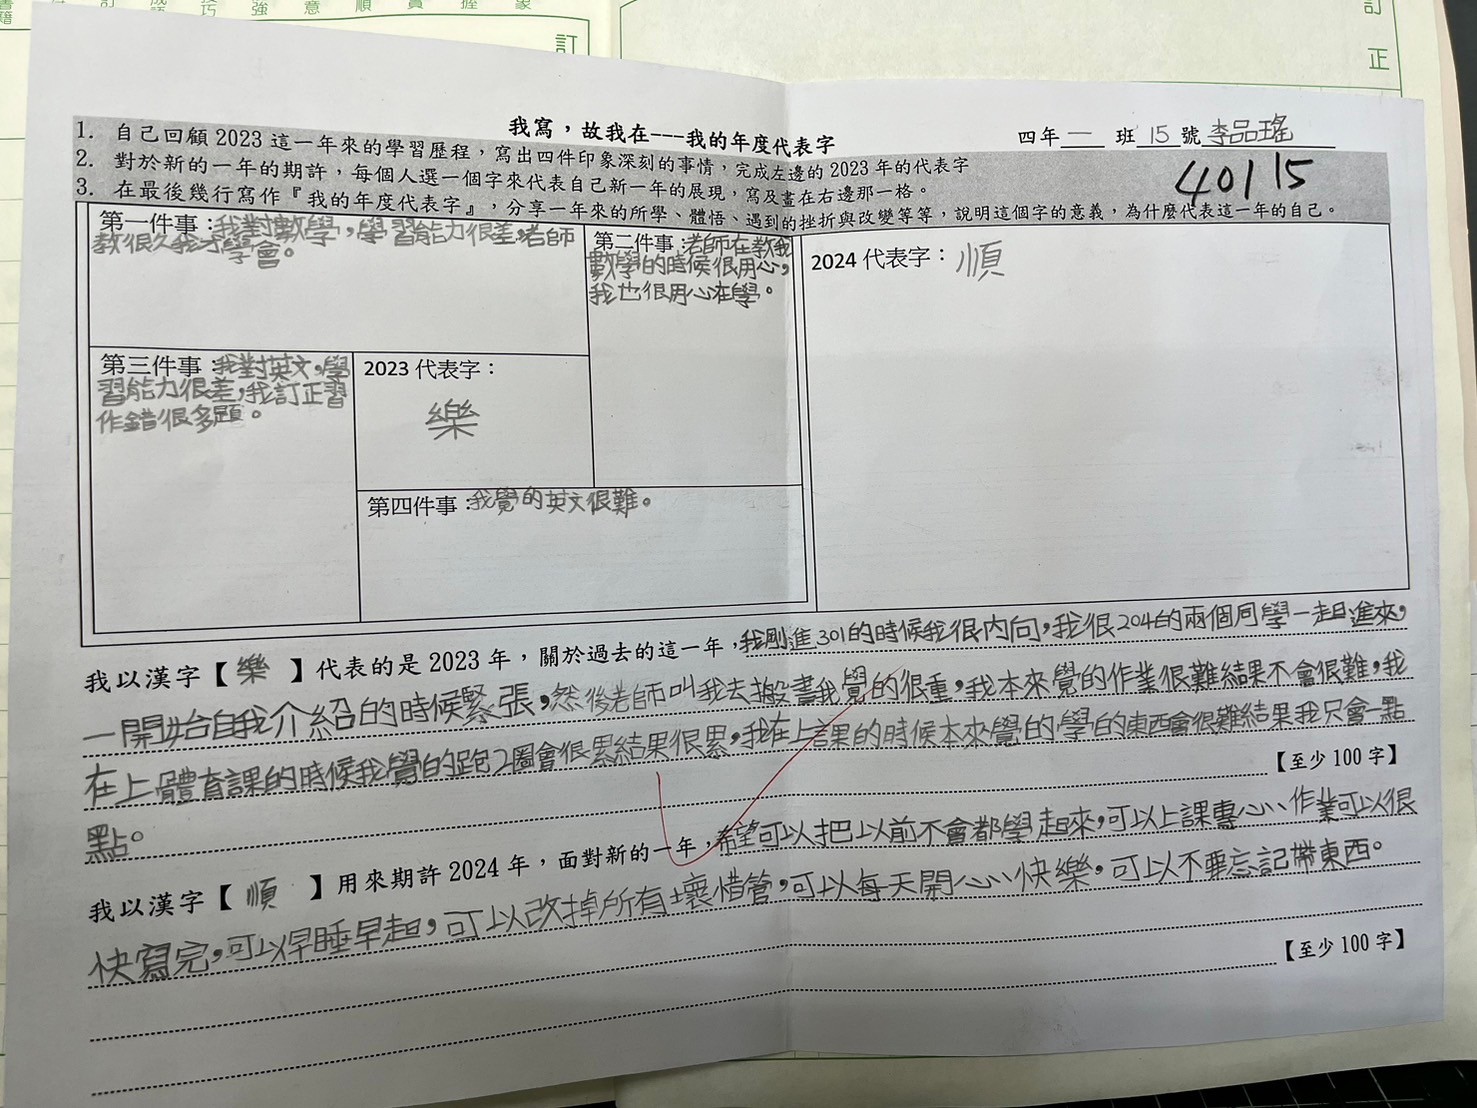 強 意 順 賞 握 象
訂
訂
正
我寫，故我在---我的年度代表字
四年一班15號李品瑤
1. 自己回顧 2023 這一年來的學習歷程，寫出四件印象深刻的事情，完成左邊的 2023 年的代表字
2. 對於新的一年的期許，每個人選一個字來代表自己新一年的展現，寫及畫在右邊那一格。
3. 在最後幾行寫作『我的年度代表字』，分享一年來的所學、體悟、遇到的挫折與改變等等，說明這個字的意義，為什麼代表這一年的自己。
40115
第一件事：我對數學，學習能力很差，老師
教很久我才學會。
第二件事：老師在教我
數學的時候很用心，
我也很用心在學。
2024 代表字：順
第三件事：我對英文，學
習能力很差，我訂正習
作錯很多題。
2023 代表字：
樂
第四件事：我覺的英文很難。
我以漢字【樂】代表的是 2023 年，關於過去的這一年，我剛進301的時候我很內向，我很204的兩個同學一起進來，
一開始自我介紹的時候緊張，然後老師叫我去搬書我覺的很重，我本來覺的作業很難結果不會很難，我
在上體育課的時候我覺的跑2圈會很累結果很累，我在上課的時候本來覺的學的東西會很難結果我只會一點
點。
【至少 100 字】
我以漢字【順】用來期許 2024 年，面對新的一年，希望可以把以前不會都學起來，可以上課專心，作業可以很
快寫完，可以早睡早起，可以改掉所有壞惜管，可以每天開心快樂，可以不要忘記帶東西。
【至少 100 字】